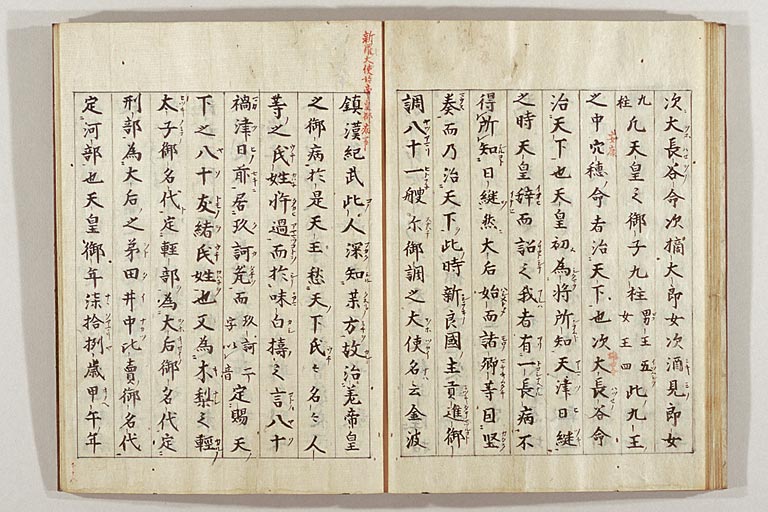 次大長谷命次摘大即女次酒見即女
九柱凢天皇之御子九柱男王五女王四此九王
之中穴穗命者治天下也次大長谷命
治天下也天皇初為將所知天津日継
之時天皇辞而詔之我者有一長病不
得所知日継然大后始而諸卿等因堅
奏而乃治天下此時新良國主貢進御
調八十一艘尒御調之大使名云金波
新羅大使治帝皇御病事
鎮漢紀武此人深知薬方故治差帝皇
之御病於是天王愁天下氏〻名〻人
等之氏姓忤過而於味白檮之言八十
禍津日前居玖訶瓮而玖訶二字以音定賜天
下之八十友緒氏姓也又為木梨之輕
太子御名代定輕部為大后御名代定
刑部為大后之弟田井中比賣御名代
定河部也天皇御年柒拾捌歳甲午年